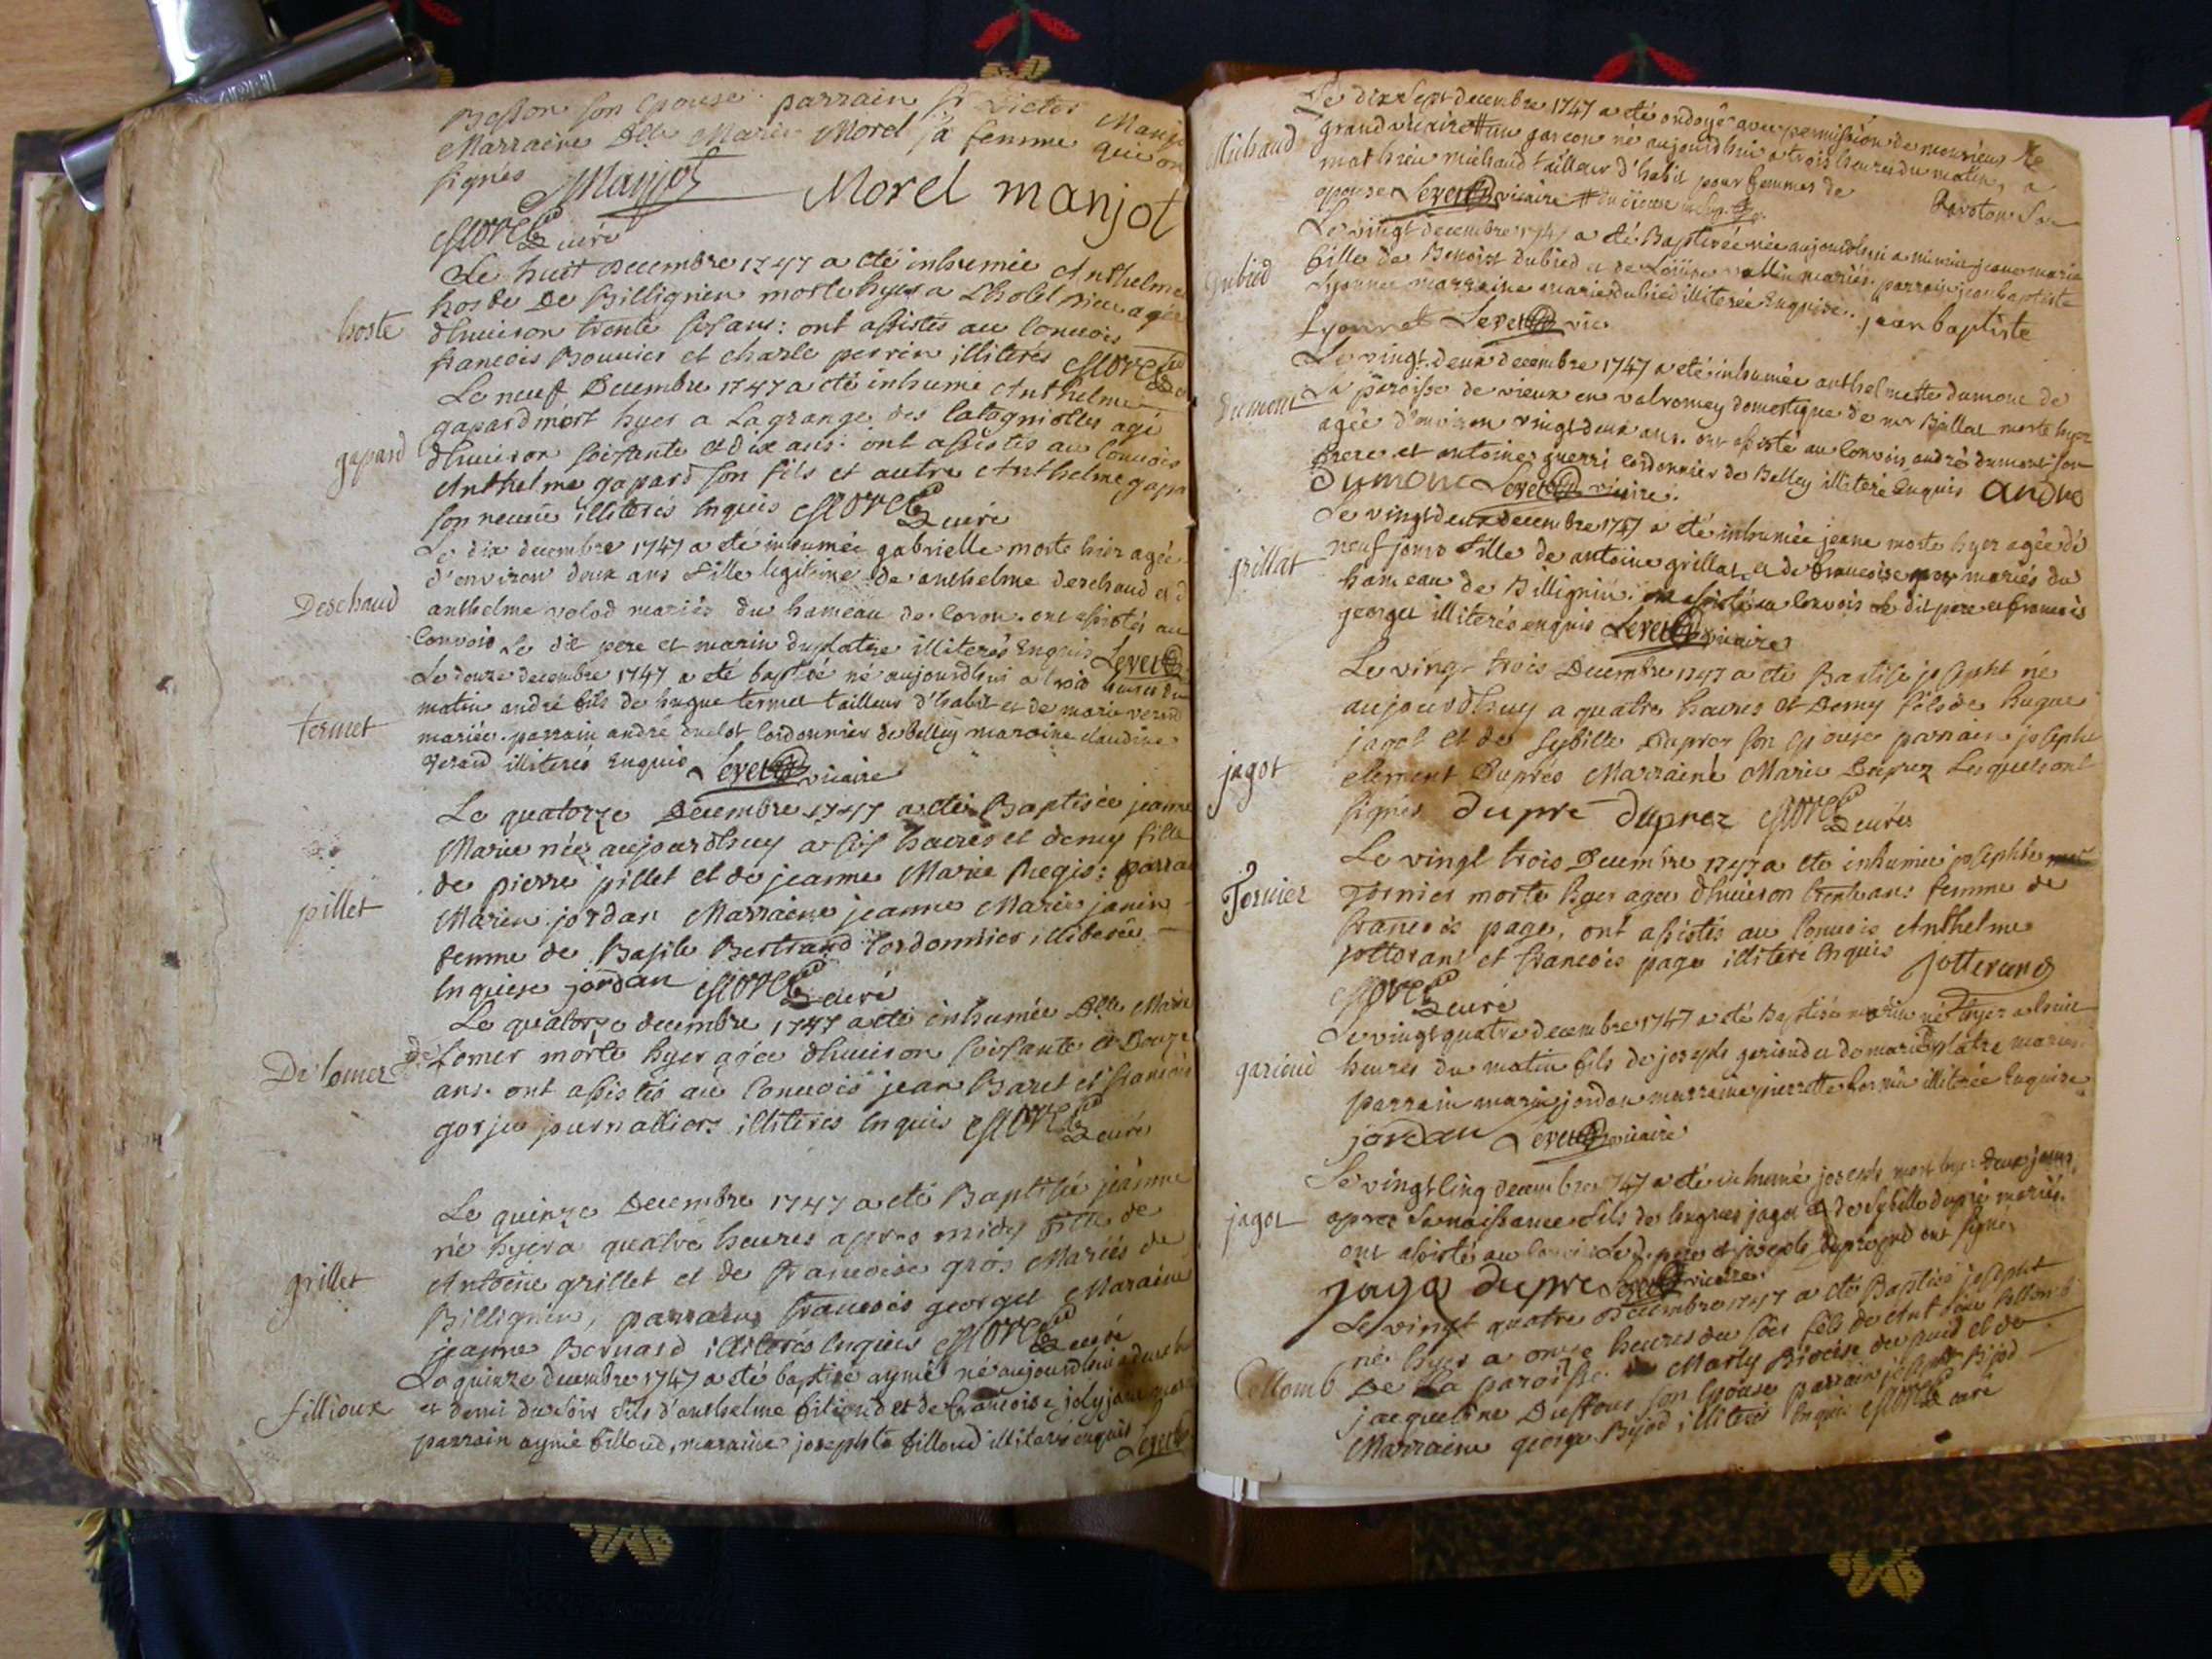 Besson son epouse parrain sr Victor Manjo
Marraine Dlle Marie Morel sa femme qui on
signés Manjot Morel manjot
Morel curé
Le huit Decembre 1747 a cté inhumée Anthelme
hoste
hoste De Billignien morte hyer a Lhotel Dieu agée
dhuiron trente six ans: ont assistés au Conuois
francois Bouuier et charle perrin illiterés Morel
Le neuf Decembre 1747 a eté inhumé Anthelme
gapard
gapard mort hyer a Lagrange des Catagniolles agé
dhuiron soisante et dix ans: ont assistés au Conuois
Anthelme gapard son fils et autre Anthelme gapar
son neueu illiterés Enquis Morel curé
Le dix decembre 1747 a eté inhumée gabrielle morte hier agée
Deschaud
d'environ deux ans fille legitime de anthelme deschaud et d
anthelme volod mariés du hameau de Coron. ont assistés au
Convois Le dit pere et marin duplatre illiterés Enquis Levet
Le douze decembre 1747 a eté baptisé né aujourdhui a trois heures du
termet
matin andré fils de hugue termet tailleur d'habit et de marie
mariés. parrain andré cordonnier de Belley maraine claudine
illiterés Enquis Levet vicaire
Le quatorze Decembre 1747 a eté Baptisée jeanne
Marie née aujourdhuy a six heures et demy fille
pillet
de pierre pillet et de jeanne Marie Regis: parra
Marin jordan Marraine jeanne Marie janin
femme de Basile Bertrand Cordonnier illiterée
Enquise jordan Morel curé
Le quatorze decembre 1747 a eté inhumée Dlle Marie
De lomer
de lomer morte hyer agée dhuiron soisante et Douze
ans. ont assistés au Conuois jean Baret et francois
gorju journalliers illiterés Enquis Morel curé
Le quinze Decembre 1747 a eté Baptisé jeanne
né hyer a quatre heures apres midy fille de
grillet
Antoine grillet et de francoise gros Mariés de
Billignin, parrain francois georget Maraine
jeanne Bernard illiterés Enquis Morel curé
Le quinze decembre 1747 a eté baptisé aymé né aujourdhui a deux h
fillioux
et demi du soir fils d'anthelme filioud et de francoise joly
parrain aymé filloud, maraine josephte filloud illiterés enquis Levet
Le dix sept decembre 1747 a eté ondoyé avec permission de monsieur le
Michaud
grand vicaire un garcon né aujourdhui a trois heures du matin, a
mathieu michaud tailleur d'habit pour femmes de Ravoton sa
epouse Levet vicaire
Le vingt decembre 1747 a eté Baptisée née aujourdhui a minuit jeane marie
Dubied
fille de Benoist Dubied et de Louise mariés. parrain jean baptiste
Lyonnet marraine marie dubied illiterée Enquise. jean baptiste
Lyonnet Levet vic.
Le vingt deux decembre 1747 a eté inhumée anthelmette dumont de
Dumont
La paroisse de vieux en valromey domestique de mr Ballat morte hyer
agée d'environ vingt deux ans. ont assisté au Convois andré dumont son
frere et antoine guerri cordonnier de Belley illiteré Enquis andré
Dumont Levet vicaire.
Le vingt deux decembre 1747 a eté inhumée jeane morte hyer agée de
grillat
neuf jours fille de antoine grillat et de francoise gros mariés du
hameau de Billignin. ont assisté au Convois le dit pere et francois
georget illiterés enquis Levet vicaire
Le vingt trois Decembre 1747 a eté Baptisé josepht né
aujourdhuy a quatre heures et Demy fils de hugue
jagot
jagot et de sybille Duprez son epouse parrain josepht
clement Duprés Marraine Marie Duprez Lesquels ont
signés dupré Duprez Morel curé
Le vingt trois Decembre 1747 a eté inhumée josephte
Tornier
Tornier morte hyer agée dhuiron trente ans: femme de
francois page, ont assistés au Conuois Anthelme
jottorant et francois page illiteré Enquis jotterand
Morel curé
Le vingt quatre decembre 1747 a eté Baptisé marin né hyer a huit
garioud
heures du matin fils de joseph garioud et de marie Duplatre mariés.
parrain marin jordan marraine pierrette illiterée Enquise
jordan Levet vicaire
Le vingt cinq decembre 1747 a eté inhumé joseph mort hyer deux jours
jagot
apres sa naissance fils de hugues jagot et de sybille dupré mariés.
ont assisté au Convois Le d. pere et joseph Dupré qui ont signé,
jago dupré Levet vicaire
Le vingt quatre Decembre 1747 a eté Baptisé josepht
né hyer a onze heures du soir fils de Antoine Collomb
Collomb
De La paroisse Marly Diocese du puid et de
jacqueline Duffour son Epouse parrain josepht Bijod
Marraine george Bijod illiterés Enquis Morel curé